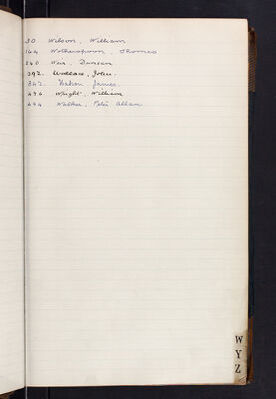 30 Wilson, William
144 Wotherspoon, Thomas
240 Weir, Duncan
392. Wallace, John.
342. Watson James.
494 Wright, William
494 Walker, Peter Allan
W
Y
Z